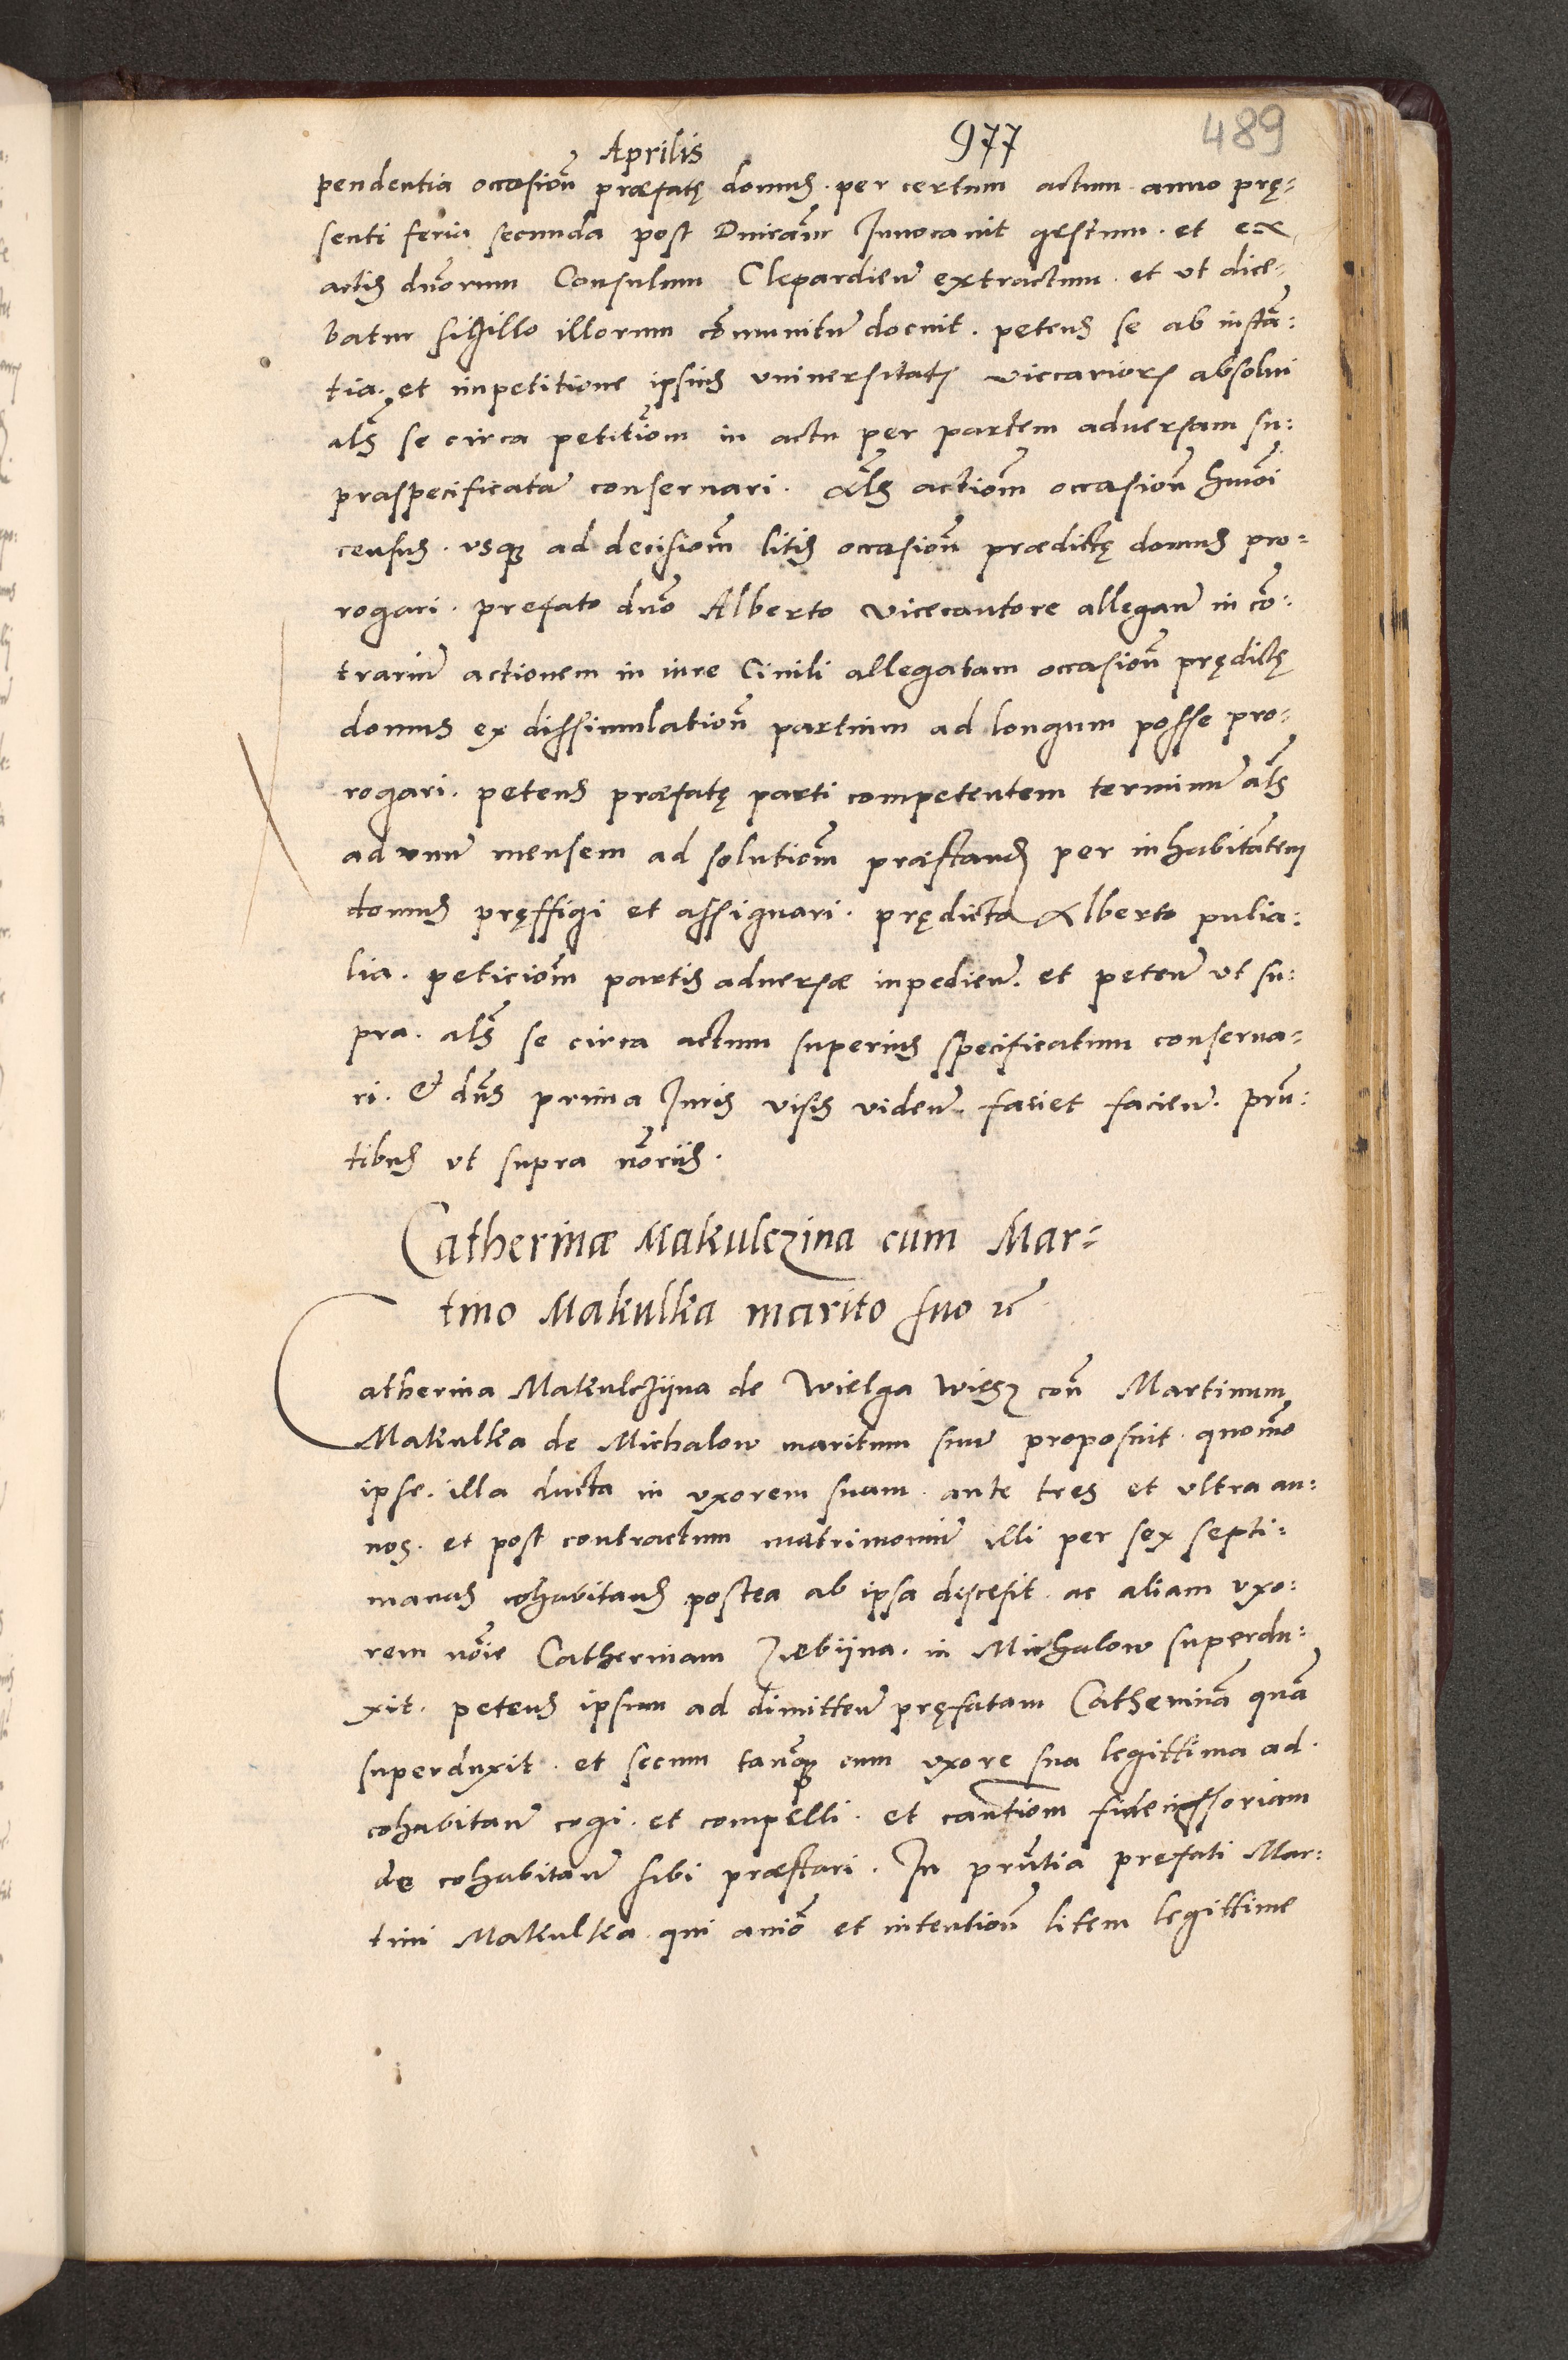 Aprilis 977 489
pendentia occasiōn præfatę domus. per certum actum anno prę-
senti feria secunda post Dnicam Inuocauit gestum. et ex
actis dnorum Consulum Clepardien̄ extractum. et vt dice-
batur sigillo illorum cōmunitū docuit. petens se ab instā-
tia. et inpetitione ipsius vniuersitatis viccariorʒ absolui
als se circa petitiōm in actu per partem aduersam su-
praspecificatā conseruari. Als actiōm occasiōn hmōi
census. vsqʒ ad decisiōm litis occasiōn prædictę domus pro-
rogari. prefato dno Alberto vicecantore allegan̄ in cō-
trariū actionem in iure Ciuili allegatam occasiōn prędictę
domus ex dissimulatiōn partium ad longum posse pro-
rogari. petens præfatę parti competentem terminū als
ad vnū mensem ad solutiōm præstandʒ per inhabitātem
domus pręffigi et assignari. prędicta Alberto pulia-
lia. peticiōm partis aduersæ inpedien̄. et peten̄ vt su-
pra. als se circa actum superius specificatum conserua-
ri. & dns prima Iuris visis viden̄. faciet facien̄. prn-
tibus vt supra nōriis.
Catherinæ Makulczina cum Mar-
tino Makulka marito suo
Catherina Makulczijna de Wielga Więsz con̄ Martinum
Makulka de Michalow maritum suū proposuit. quomō
ipse. illa ducta in vxorem suam. ante tres et vltra an-
nos. et post contractum matrimoniū illi per sex septi-
manas cohabitans postea ab ipsa discesit. ac aliam vxo-
rem nōie Catherinam Zębijna. in Michalow superdu-
xit. petens ipsum ad dimitten̄ pręfatam Catherinā quā
superduxit. et secum tanqʒ cum vxore sua legittima ad
cohabitan̄ cogi. et compelli. et cautiōm fideiussoriam
de cohabitan̄ sibi præstari. In prntia prefati Mar-
tini Makulka qui aniō et intentiōn litem legittime